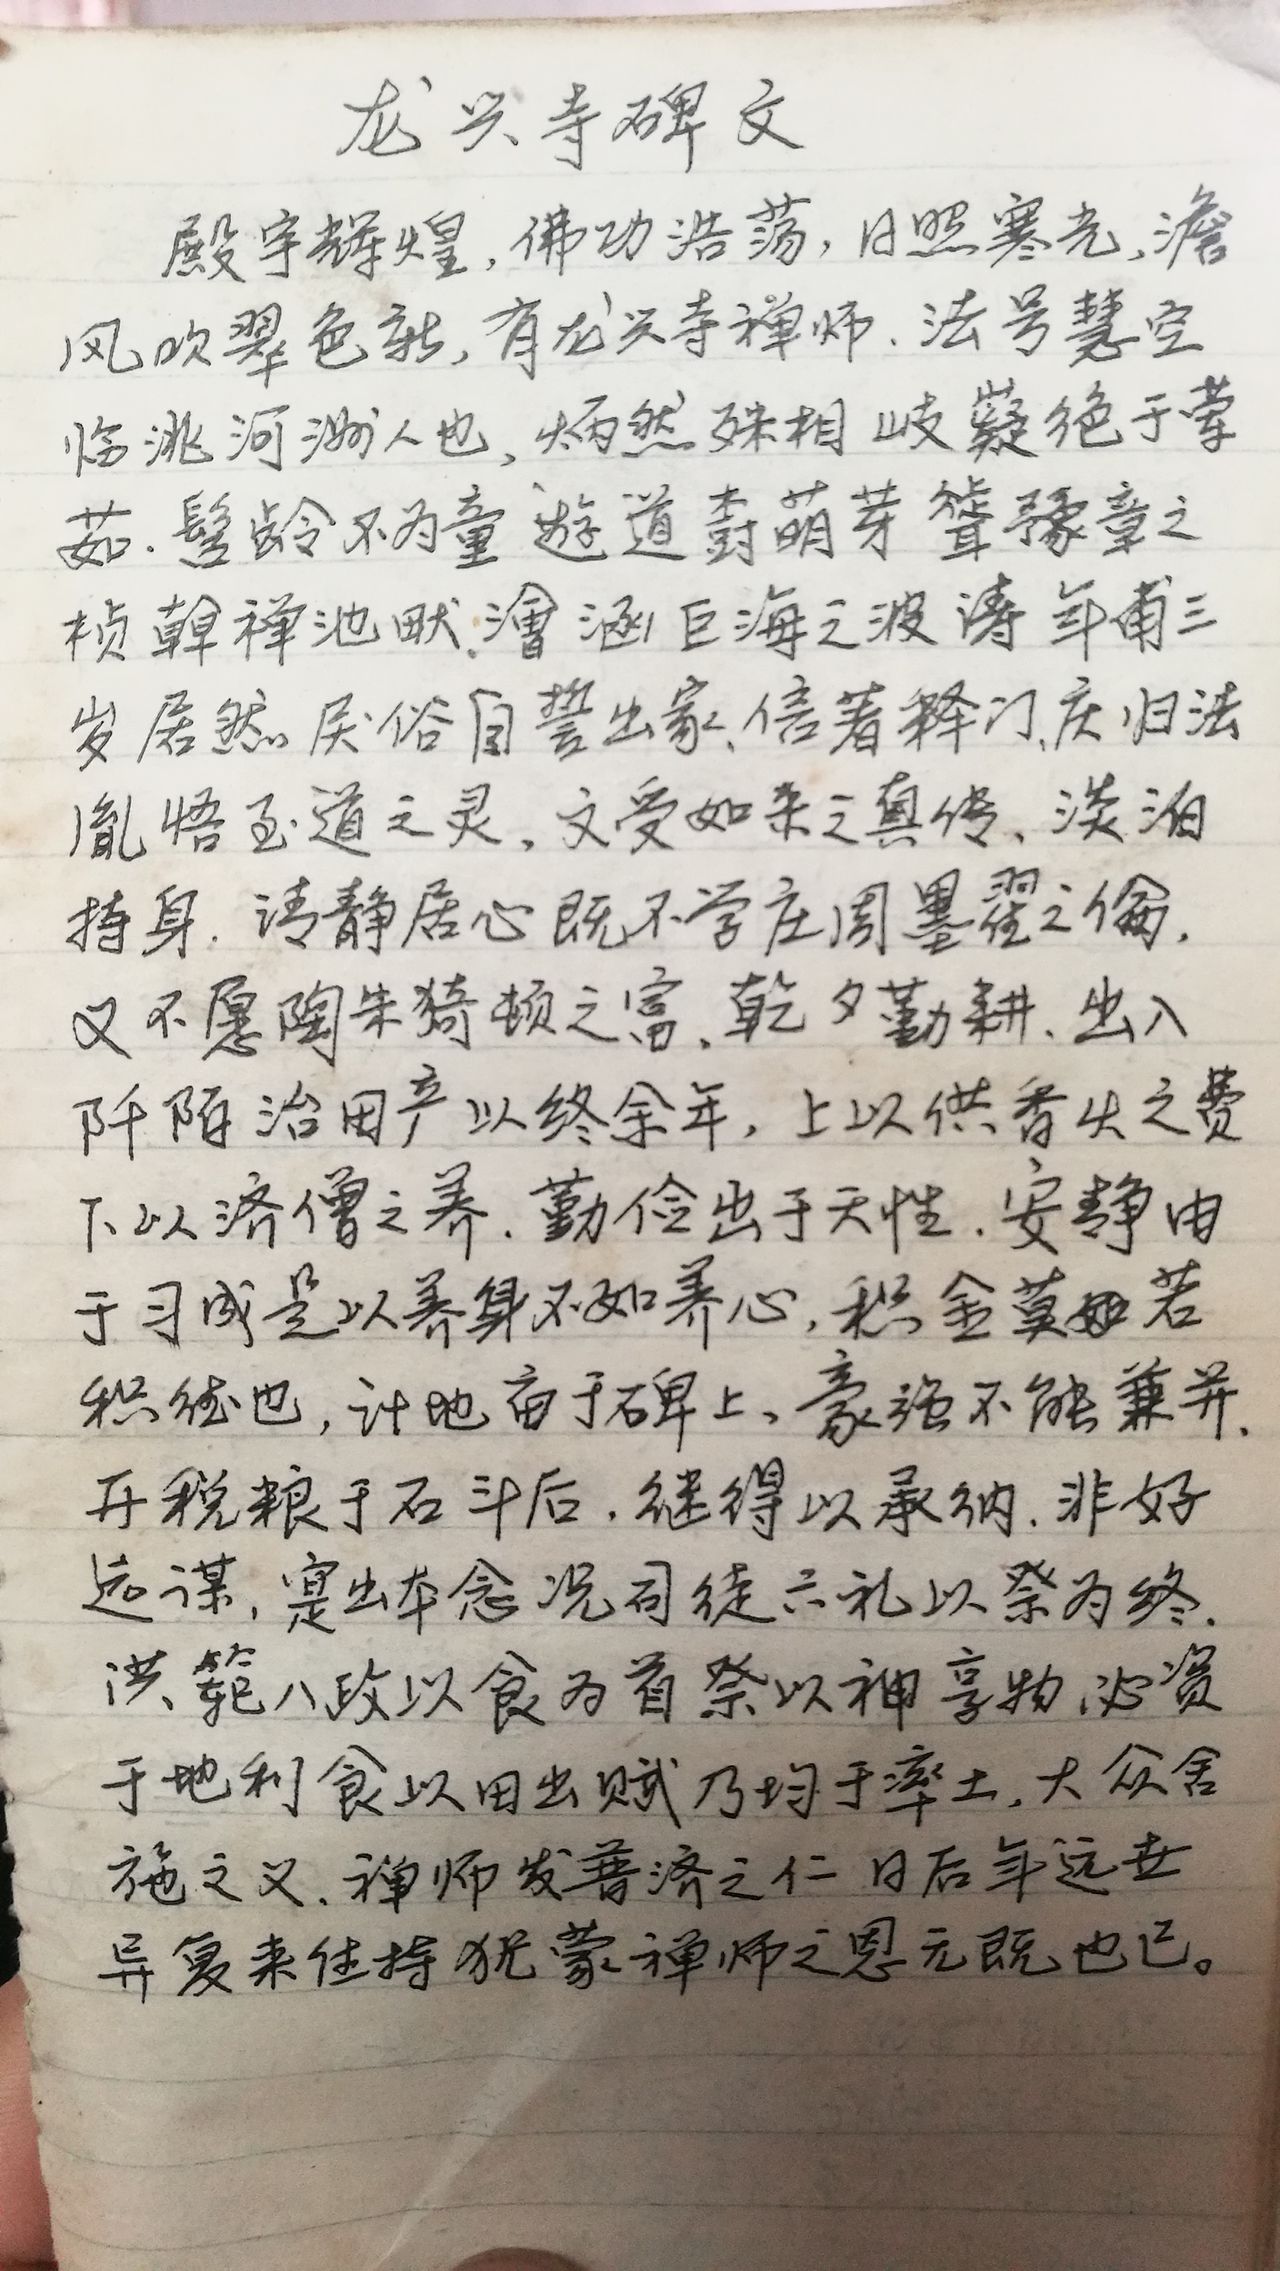 龙兴寺碑文
殿宇辉煌,佛功浩荡,日照寒光,澹
风吹翠色新,有龙兴寺禅师.法号慧空
临洮河洲人也,炳然殊相岐嶷绝于荤
茹.髫龄不为童遊道树萌芽聳豫章之
桢榦禅池畎、澮涵巨海之波涛年甫三
岁居然厌俗自誓出家、信著释门、庆归法
胤悟至道之灵,文受如来之真传、淡泊
持身.清静居心既不学庄周墨翟之倫,
又不愿陶朱猗顿之富,乾夕勤耕、出入
阡陌治田产以终余年,上以供香火之费
下以济僧之养.勤俭出于天性.安静由
于习成是以养身不如养心,积金莫如若
积德也,计地亩于碑上、豪强不能兼并.
开税粮于石斗后,继得以承纳.非好
远谋,寔出本念况司徒六礼以祭为终.
洪範八政以食为首祭以神享物必资
于地利食以田出赋乃均于率土,大众舍
施之义、禅师发普济之仁日后年远世
异复来住持犹蒙禅师之恩无既也已。